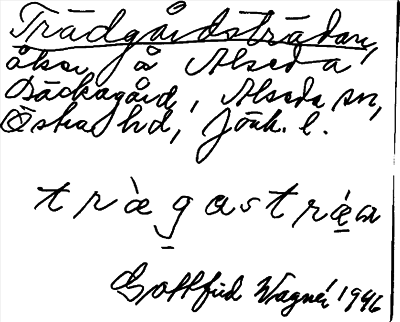 Trädgårdsträdan,
åker å Alseda
Bäckagård, Alseda sn,
Östra hd, Jönk. l.
trægastræn
Gottfrid Wagnér 1946